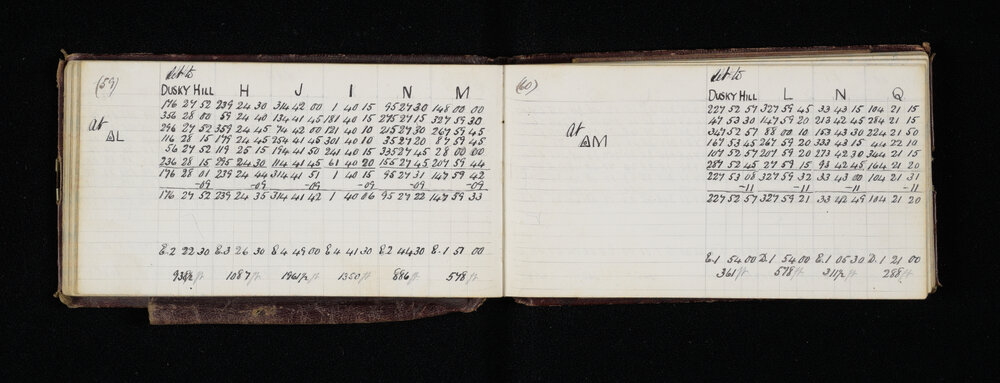 (59)
Set to
DUSKY HILL H J I N M
at
△L
176 27 52 239 24 30 314 42 00 1 40 15 95 27 30 148 00 00
356 28 00 59 24 40 134 41 45 181 40 15 275 27 15 327 59 30
296 27 52 359 24 45 74 42 00 121 40 10 215 27 30 267 59 45
116 28 15 179 24 45 254 41 45 301 40 10 35 27 20 87 59 45
56 27 52 119 25 15 194 41 50 241 40 15 335 27 45 28 00 00
236 28 15 295 24 30 114 41 45 61 40 20 155 27 45 207 59 44
176 28 01 239 24 44 314 41 51 1 40 15 95 27 31 147 59 42
-09 -09 -09 -09 -09 -09
176 27 52 239 24 35 314 41 42 1 40 06 95 27 22 147 59 33
E.2 22 30 E.3 26 30 E.4 49 00 E.4 41 30 E.2 44 30 E.1 51 00
1087ft 1350ft 886ft 578ft
(60)
Set to
DUSKY HILL L N Q
at
△M
227 52 57 327 59 45 33 43 15 104 21 15
47 53 30 147 59 20 213 42 45 284 21 15
347 52 57 88 00 10 153 43 30 224 21 50
167 53 45 267 59 20 333 43 15 44 22 10
107 52 57 207 59 20 273 42 30 344 21 15
287 52 45 27 59 15 93 42 45 164 21 20
227 53 08 327 59 32 33 43 00 104 21 31
-11 -11 -11 -11
227 52 57 327 59 21 33 42 49 104 21 20
E.1 54 00 D.1 54 00 E.1 05 30 D.1 21 00
361ft 578ft 288ft